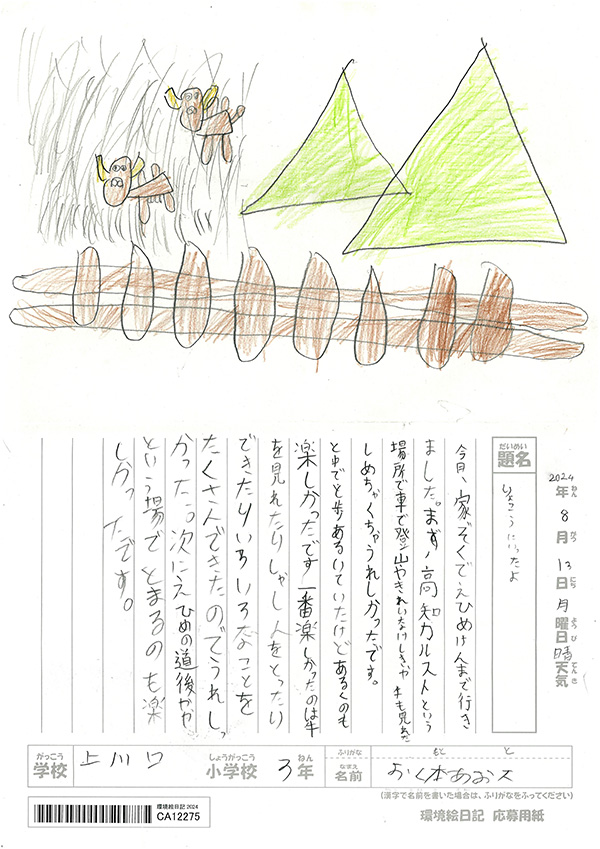 2024年8月13日月曜日晴天気
ねん がつ にち ようび てんき
だいめい
題名
りょこうにいったよ
今日、家ぞくでえひめけんまで行き
ました。まず、高知カルストという
場所で車で登山やきれいなけしきや牛も見れ
しめちゃくちゃうれしかったです。
と中でと歩あるいていたけどあるくのも
楽しかったです一番楽しかったのは牛
を見れたりしゃし人をとったり
できたりいろいろなことを
たくさんできたのでうれしっ
かった。次にえひめの道後やや
という場でとまるのも楽
しかったです。
がっこう
学校
上川口
しょうがっこう
小学校
3年
ねん
ふりがな
もと と
なまえ
名前
おく本あお
(漢字で名前を書いた場合は、ふりがなをふってください)
環境絵日記2024
CA12275
環境絵日記 応募用紙